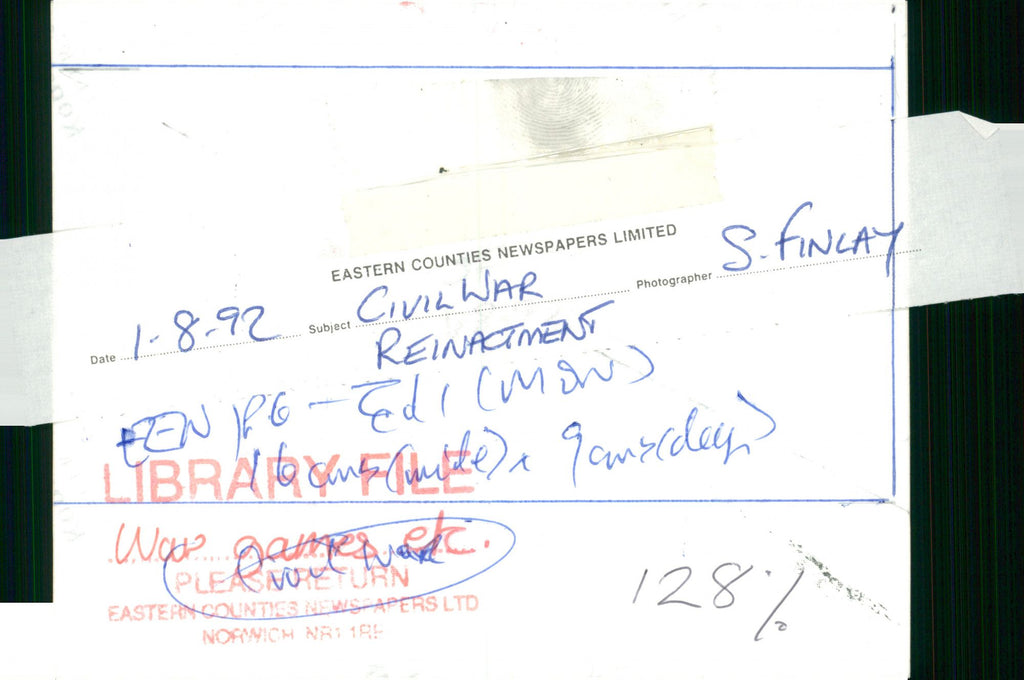 EASTERN COUNTIES NEWSPAPERS LIMITED
Date 1-8-92 Subject CIVIL WAR Photographer S. FINLAY
REINACTMENT
EEN P6 - Ed 1 (MON)
16cms(wide) x 9cms(deep)
LIBRARY FILE
War games etc.
Civil War
PLEASE RETURN
EASTERN COUNTIES NEWSPAPERS LTD
NORWICH NR1 1RE
128%